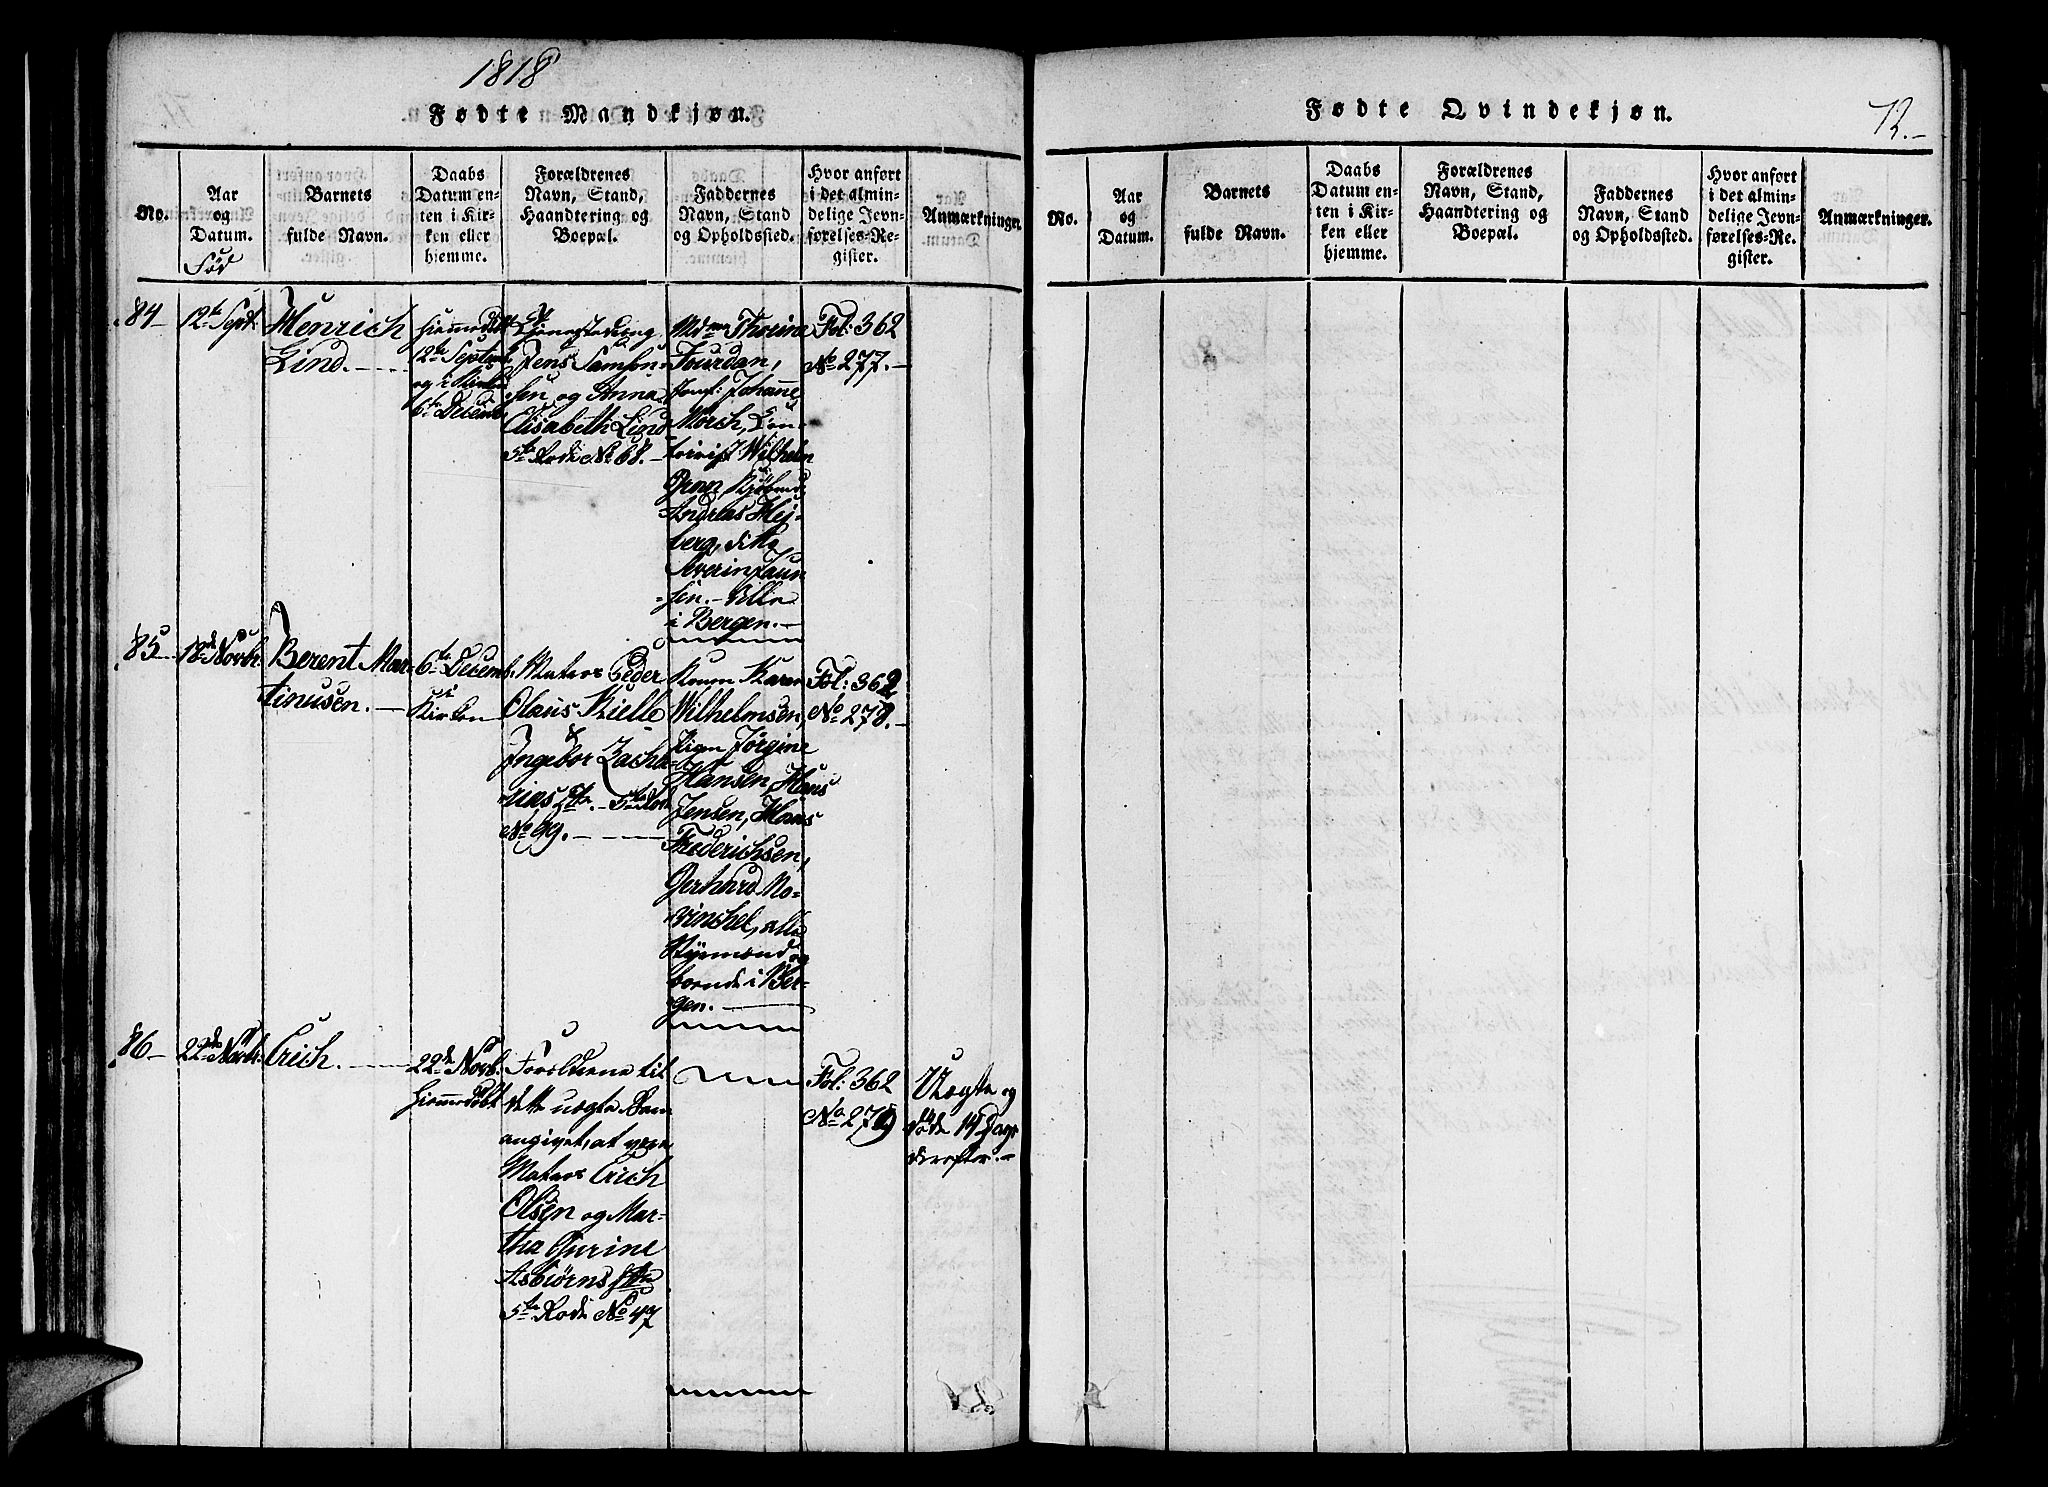 1818
Fødte Mandkjøn.
No.
Aar
og
Datum.
Fød
Barnets
fulde Navn.
Daabs
Datum en-
ten i Kir-
ken eller
hjemme.
Forældrenes
Navn, Stand,
Haandtering og
Boepæl.
Faddernes
Navn, Stand
og Opholdssted.
Hvor anført
i det almin-
delige Jevn-
førelses-Re-
gister.
Anmærkninger.
84
12te Septbr
Henrich
Lind.
hiemmedøbt
12te Septemb.
og i Kirken
6te Decemb
Jens Samson-
sen og Anna
Elisabeth Lind
5te Rode No 68.
Mdme Thorina
Jourdan,
Jomf: Johanne
Morch,
Wilhelm
Grøn, Kjøbmd
Andreas Hej-
berg, ditto
Severin Jaun-
sen. alle
i Bergen.
Fol: 362
No 277.
85
18de Novbr.
Berent Mar-
tinusen.
6te Decemb.
Kirken
Matros Peder
Olaus Kielle
&
Ingebor Zacha-
rias Dtr. 5te Rode
No 99.
Konen Karen
Wilhelmsen,
Pigen Jørgine
Hansen, Hans
Jensen, Hans
Frederichsen,
Gerhard Ro-
vinchel, alle
Styrmænd og
boende i Ber-
gen.
Fol: 362
No 278.
86
22de Novbr.
Erich.
22de Novb.
hiemmedøbt
Forældrene til
dette uægte Barn
angivet, at være
Matros Erich
Olsen og Mar-
tha Gurine
Asbiørns Dtr
5te Rode No 47
Fol: 362
No 279
Uægte og
døde 14 Dage
derefter.
Fødte Qvindekjøn.
72.
No.
Aar
og
Datum.
Barnets
fulde Navn.
Daabs
Datum en-
ten i Kir-
ken eller
hjemme.
Forældrenes
Navn, Stand,
Haandtering og
Boepæl.
Faddernes
Navn, Stand
og Opholdssted.
Hvor anført
i det almin-
delige Jevn-
førelses-Re-
gister.
Anmærkninger.